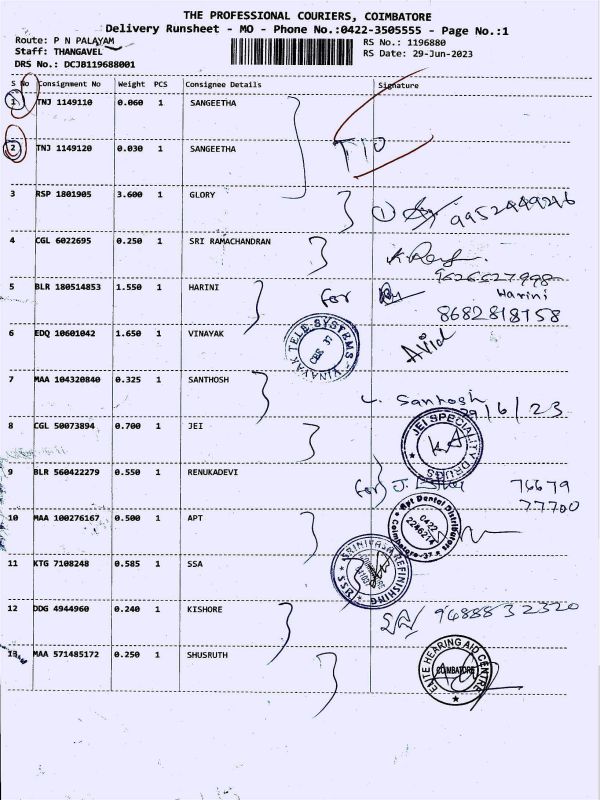 THE PROFESSIONAL COURIERS, COIMBATORE
Delivery Runsheet - MO - Phone No.:0422-3505555 - Page No.:1
Route: P N PALAYAM
RS No.: 1196880
Staff: THANGAVEL
RS Date: 29-Jun-2023
DRS No.: DCJB119688001
S No Consignment No Weight PCS Consignee Details Signature
1 TNJ 1149110 0.060 1 SANGEETHA
2 TNJ 1149120 0.030 1 SANGEETHA
3 RSP 1801905 3.600 1 GLORY
① 9952449246
4 CGL 6022695 0.250 1 SRI RAMACHANDRAN
9626627998
5 BLR 180514853 1.550 1 HARINI
for Harini
8682818158
6 EDQ 10601042 1.650 1 VINAYAK
VINAYAK TELE SYSTEMS
CBE 37
7 MAA 104320840 0.325 1 SANTHOSH
Santhosh
29/6/23
8 CGL 50073894 0.700 1 JEI
JEI SPECIALITY DRUGS
9 BLR 560422279 0.550 1 RENUKADEVI
for J.
76679
77700
10 MAA 100276167 0.500 1 APT
Apt Dental Distributors
0422
2246214
Coimbatore-37
11 KTG 7108248 0.585 1 SSA
REFINISHING
12 DDG 4944960 0.240 1 KISHORE
9688832320
13 MAA 571485172 0.250 1 SHUSRUTH
ELITE HEARING AID CENTRE
COIMBATORE